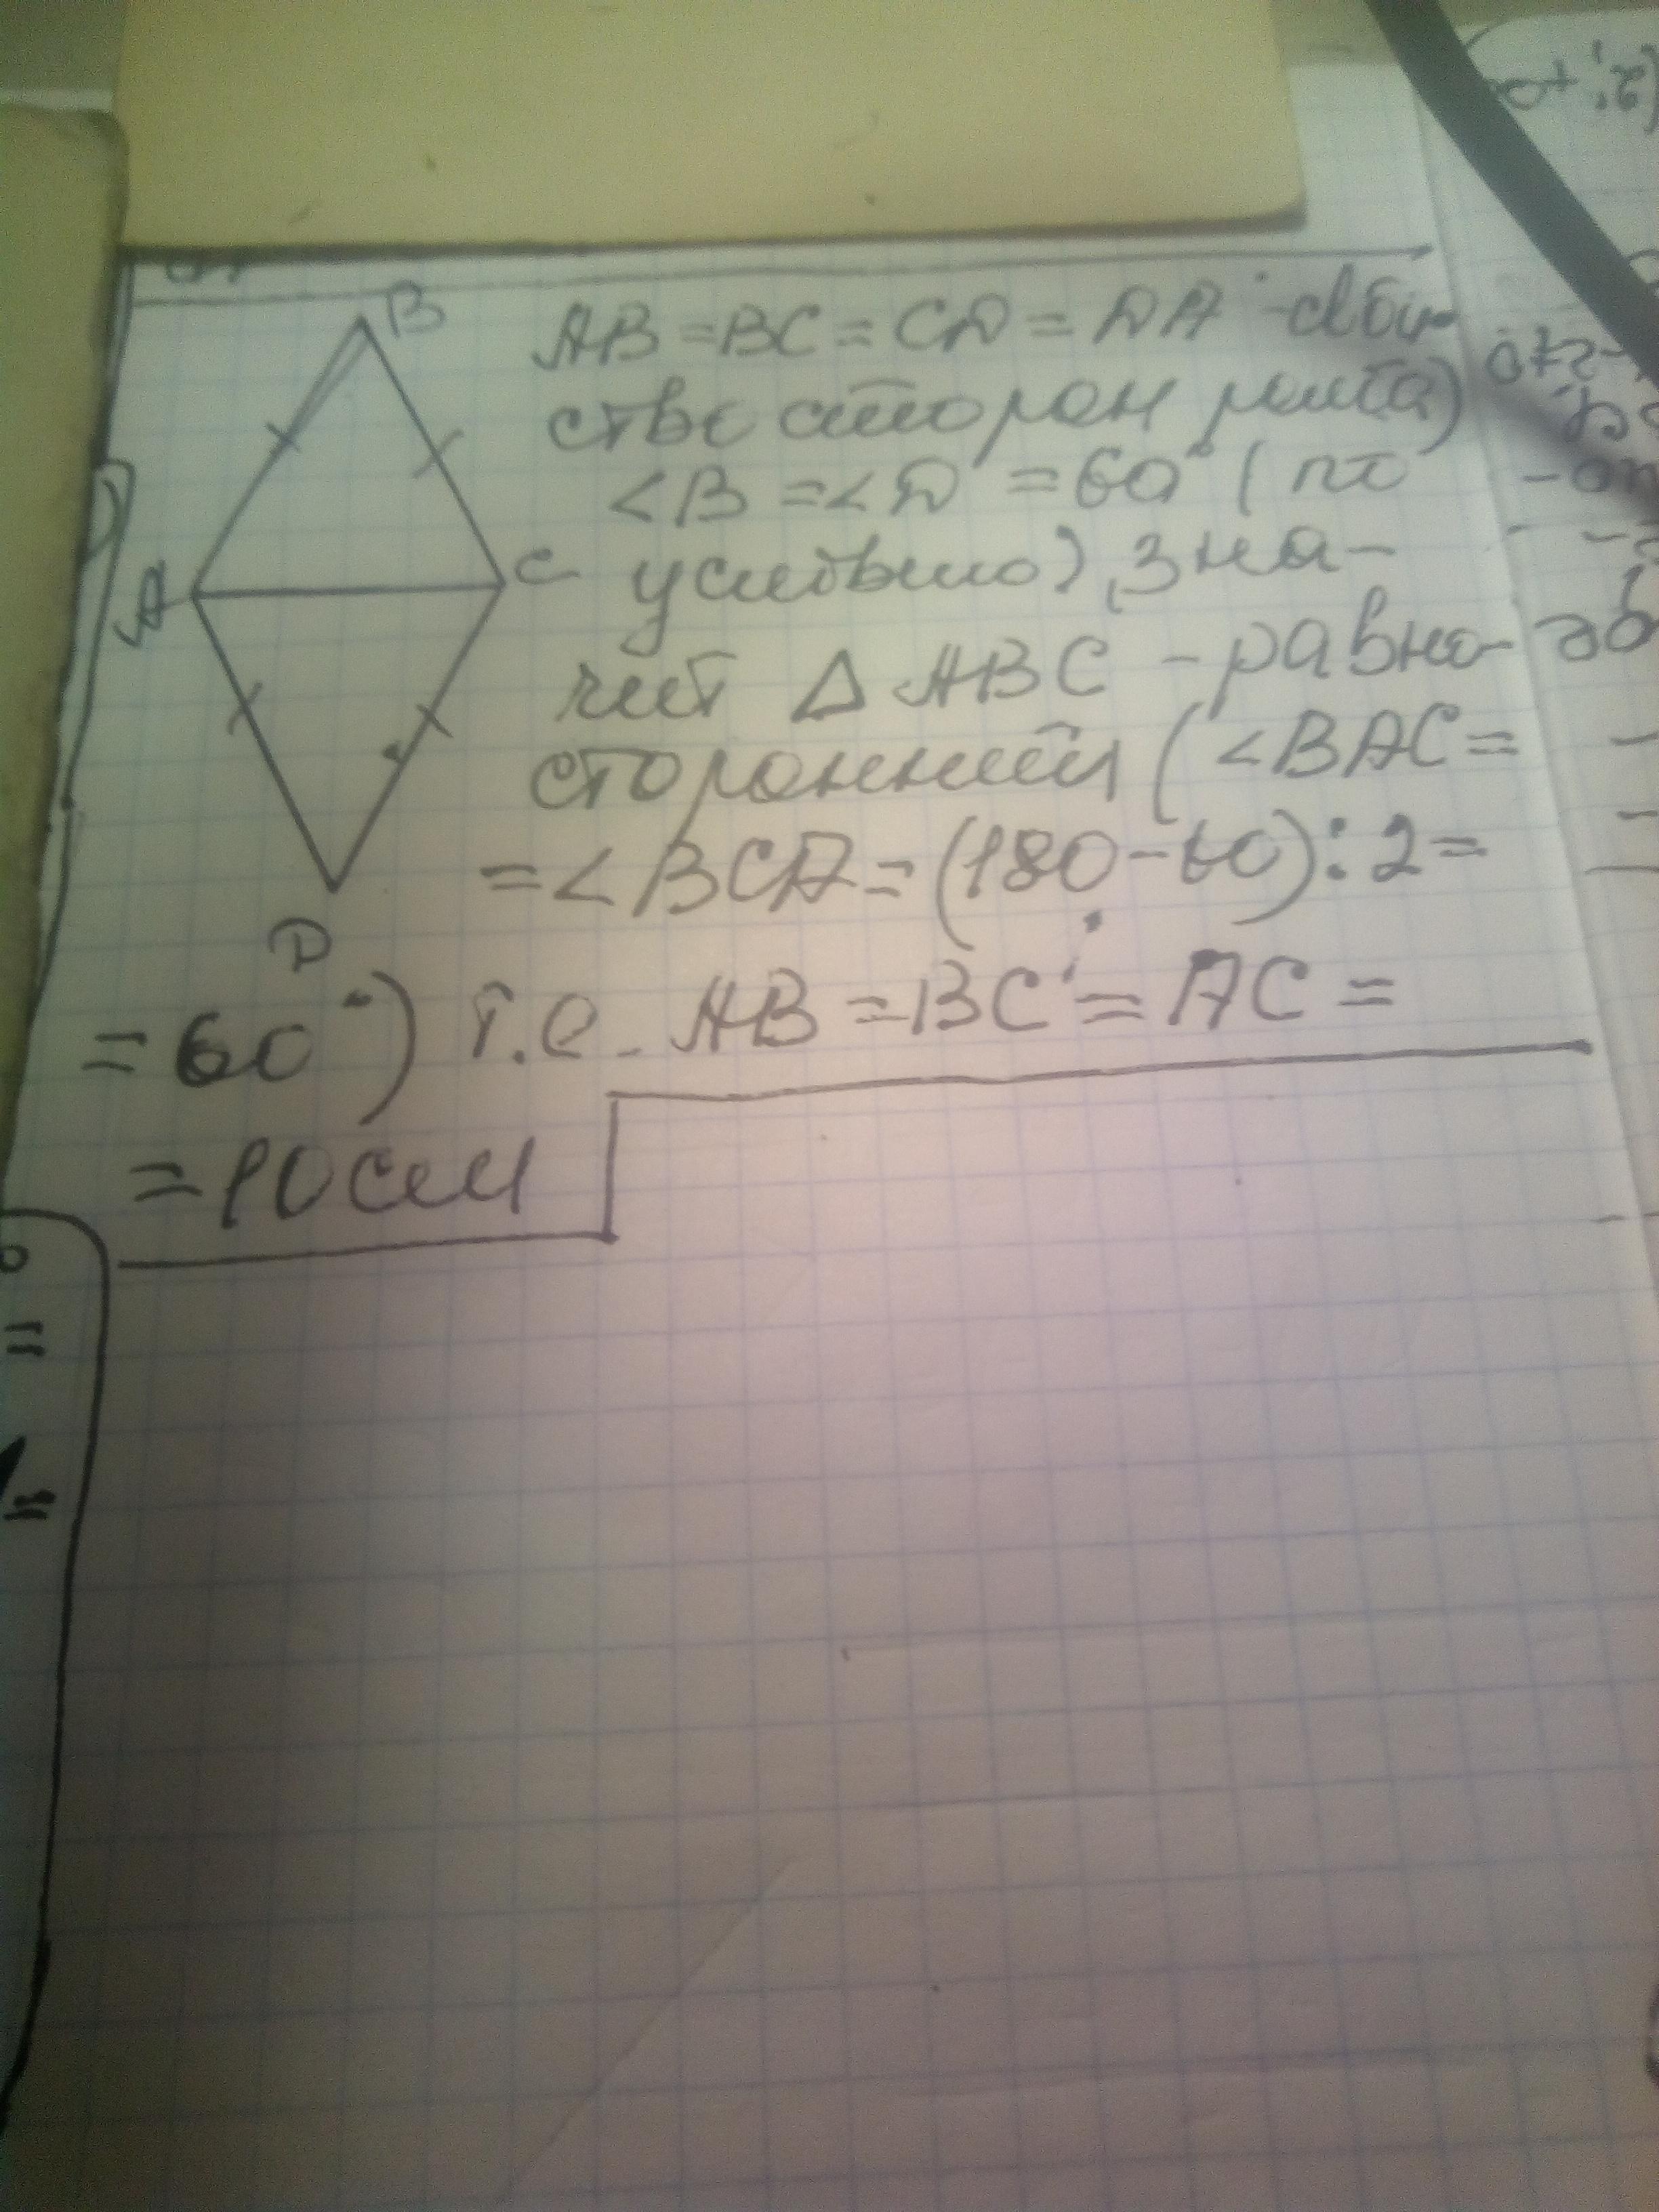 B
A
C
D
AB = BC = CD = DA - свой-
ство сторон ромба)
<B = <D = 60° (по
условию), зна-
чит △ ABC - равно-
сторонний (<BAC =
= <BCA = (180 - 60) : 2 =
= 60°) т.е. AB = BC = AC =
= 10 см